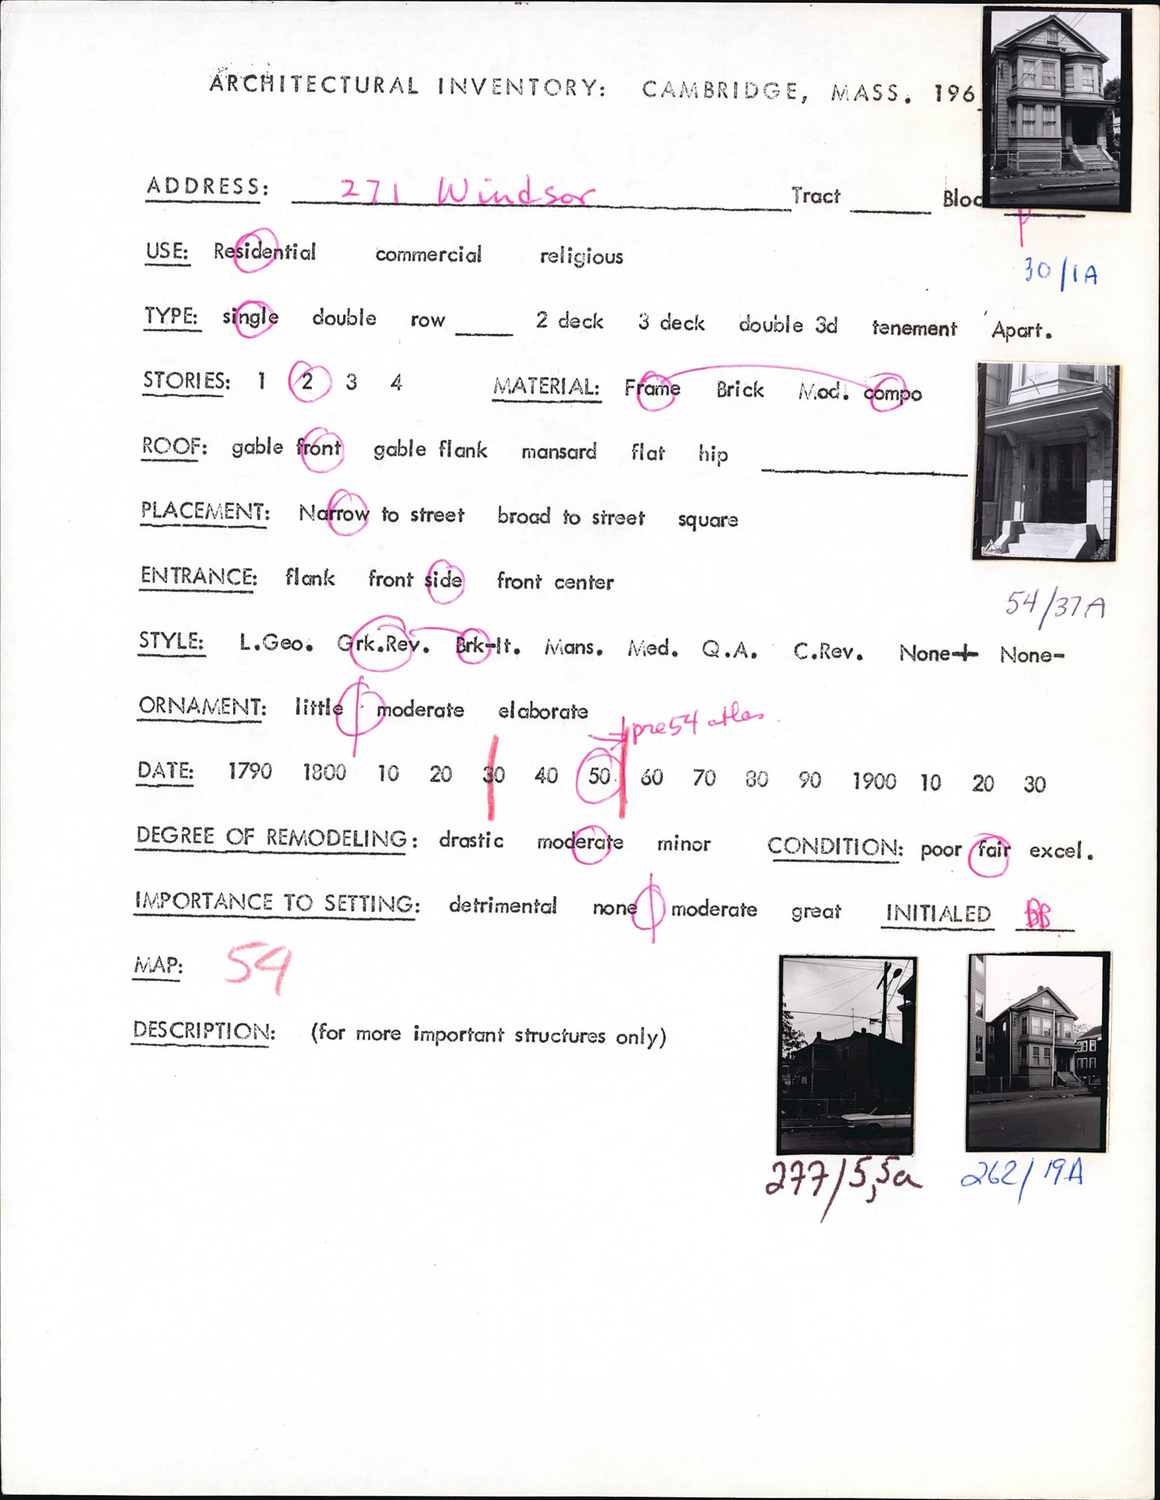 ARCHITECTURAL INVENTORY: CAMBRIDGE, MASS. 196
ADDRESS: 271 Windsor Tract ____ Bloc
30/1A
USE: Residential commercial religious
TYPE: single double row ____ 2 deck 3 deck double 3d tenement Apart.
STORIES: 1 2 3 4 MATERIAL: Frame Brick Mod. compo
ROOF: gable front gable flank mansard flat hip ____
PLACEMENT: Narrow to street broad to street square
ENTRANCE: flank front side front center
54/37A
STYLE: L.Geo. Grk.Rev. Brk-It. Mans. Med. Q.A. C.Rev. None+ None-
ORNAMENT: little moderate elaborate
pre54 atlas
DATE: 1790 1800 10 20 30 40 50 60 70 80 90 1900 10 20 30
DEGREE OF REMODELING: drastic moderate minor CONDITION: poor fair excel.
IMPORTANCE TO SETTING: detrimental none moderate great INITIALED BB
MAP: 54
DESCRIPTION: (for more important structures only)
277/5,5a 262/19A